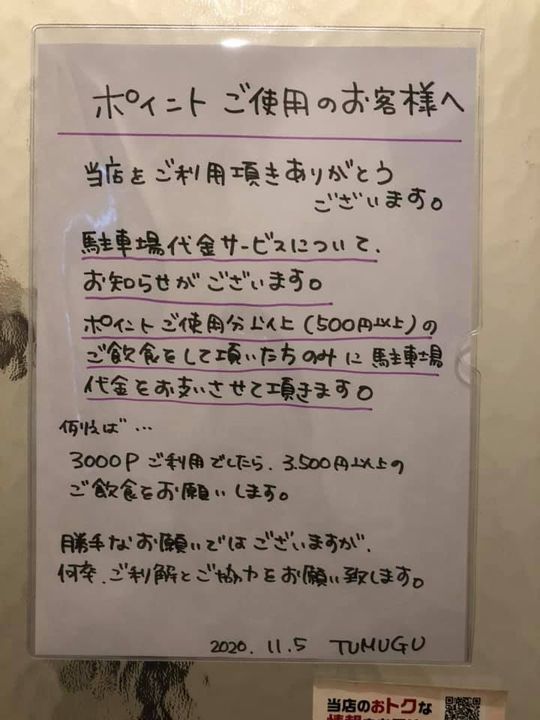 ポイント ご使用のお客様へ
当店をご利用頂きありがとう
ございます。
駐車場代金サービスについて、
お知らせがございます。
ポイントご使用分以上(500円以上)の
ご飲食をして頂いた方のみに駐車場
代金をお支いさせて頂きます。
例えば…
3000P ご利用でしたら、3.500円以上の
ご飲食をお願いします。
勝手なお願いではございますが、
何卒、ご利解とご協力をお願い致します。
2020. 11.5 TUMUGU
当店のおトクな